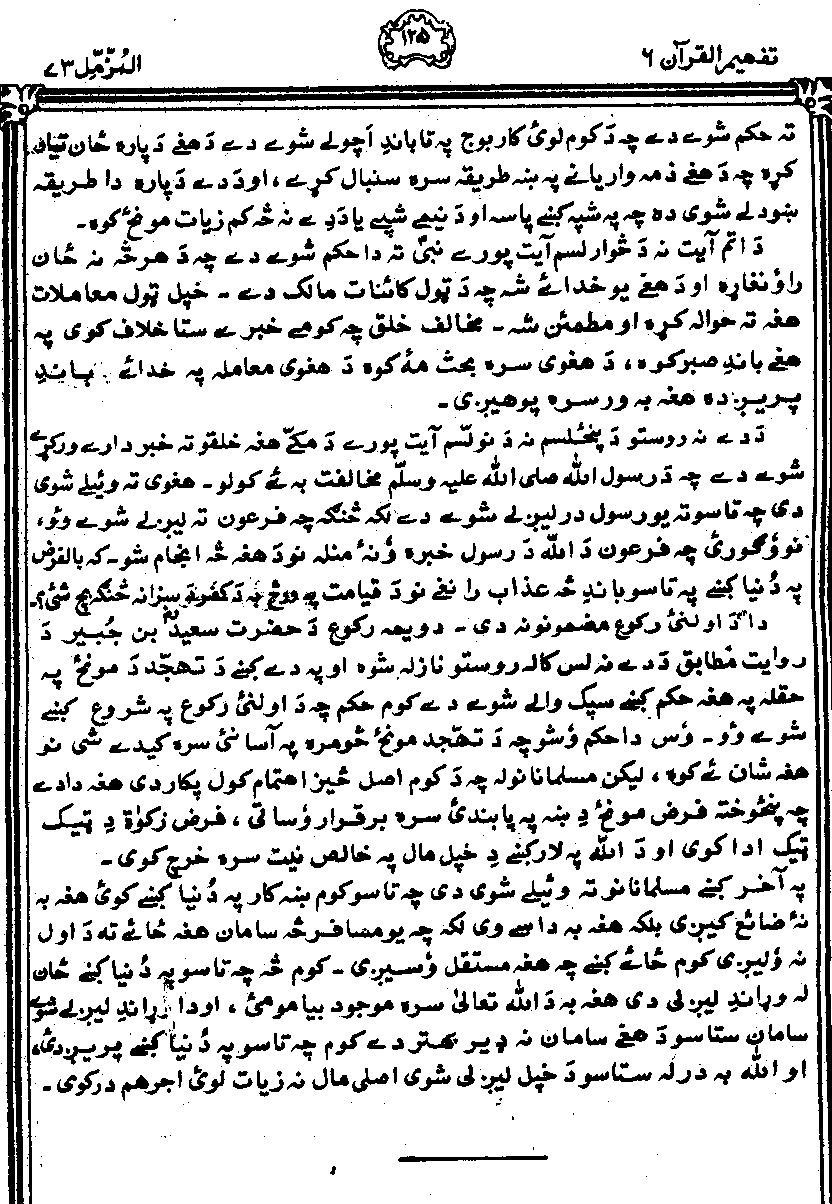 تفهیم القرآن ۶
۱۲۵
المُزّمِّل ۷۳
ته حکم شوے دے چه دَ کوم لوئ کار بوج په تا باندِ اَچولے شوے دے دَ هغے دَ پاره ځان تیار
کړه چه دَ هغے ذمه واریانے په ښه طریقه سره سنبال کړے، اودَ دے دَ پاره دا طریقه
ښودلے شوی ده چه په شپه کښے پاسه او دَ نیمے شپے یا دَدِے نه څه کم زیات مونځ کوه۔
دَ اتم آیت نه دَ څوارلسم آیت پورے نبیؐ ته دا حکم شوے دے چه دَ هرڅه نه ځان
راوٗنغاړه او دَ هغے یو خدائے شه چه دَ ټول کائنات مالک دے ۔ خپل ټول معاملات
هغه ته حواله کړه او مطمئن شه۔ مخالف خلق چه کومے خبرے ستا خلاف کوی په
هغے باندِ صبر کوه، دَ هغوی سره بحث مهٔ کوه دَ هغوی معامله په خدائے باندِ
پریږده هغه به ورسره پوهیږی۔
دَ دے نه روستو دَ پنځلسم نه دَ نولسم آیت پورے دَ مکے هغه خلقو ته خبردارے ورکړے
شوے دے چه دَ رسول الله صلی الله علیه وسلّم مخالفت به ئے کولو۔ هغوی ته وئیلے شوی
دی چه تاسو ته یو رسول درلیږلے شوے دے لکه څنګه چه فرعون ته لیږلے شوے وٗو،
نو وٗګورئ چه فرعون دَ الله دَ رسول خبره وٗنهٔ منله نو دَ هغه څه انجام شو۔ که بالفرض
په دُنیا کښے په تاسو باندِ څه عذاب را نغے نو دَ قیامت په ورځ به دَ کفر دَ سزا نه څنګه بچ شئ؟۔
دا دَ اولنئ رکوع مضمونونه دی ۔ دویمه رکوع دَ حضرت سعیدؓ بن جُبیر دَ
روایت مُطابق دَ دے نه لس کاله روستو نازله شوه او په دے کښے دَ تهجّد دَ مونځ په
حقله په هغه حکم کښے سپک والے شوے دے کوم حکم چه دَ اولنئ رکوع په شروع کښے
شوے وٗو۔ وٗس دا حکم وٗشو چه دَ تهجّد مونځ څومره په آسانئ سره کیدے شی نو
هغه شان ئے کوه، لیکن مسلمانانو له چه دَ کوم اصل څیز اهتمام کول پکار دی هغه دا دے
چه پنځوخته فرض مونځ دِ ښه په پابندئ سره برقرار وٗساتی، فرض زکوٰة دِ ټیک
ټیک ادا کوی او دَ الله په لار کښے دِ خپل مال په خالص نیت سره خرچ کوی۔
په آخر کښے مسلمانانو ته وئیلے شوی دی چه تاسو کوم ښه کار په دُنیا کښے کوئ هغه به
نهٔ ضائع کیږی بلکه هغه به داسے وی لکه چه یو مسافر څه سامان هغه ځائے ته دَ اول
نه وٗلیږی کوم ځائے کښے چه هغه مستقل وٗسیږی ۔ کوم څه چه تاسو په دُنیا کښے ځان
له وړاندِ لیږلی دی هغه به دَ الله تعالیٰ سره موجود بیا مومئ، او دا وړاندِ لیږلے شوے
سامان ستاسو دَ هغے سامان نه ډیر بهتر دے کوم چه تاسو په دُنیا کښے پریږدئ،
او الله به درله ستاسو دَ خپل لیږلی شوی اصلی مال نه زیات لوئ اجر هم درکوی۔